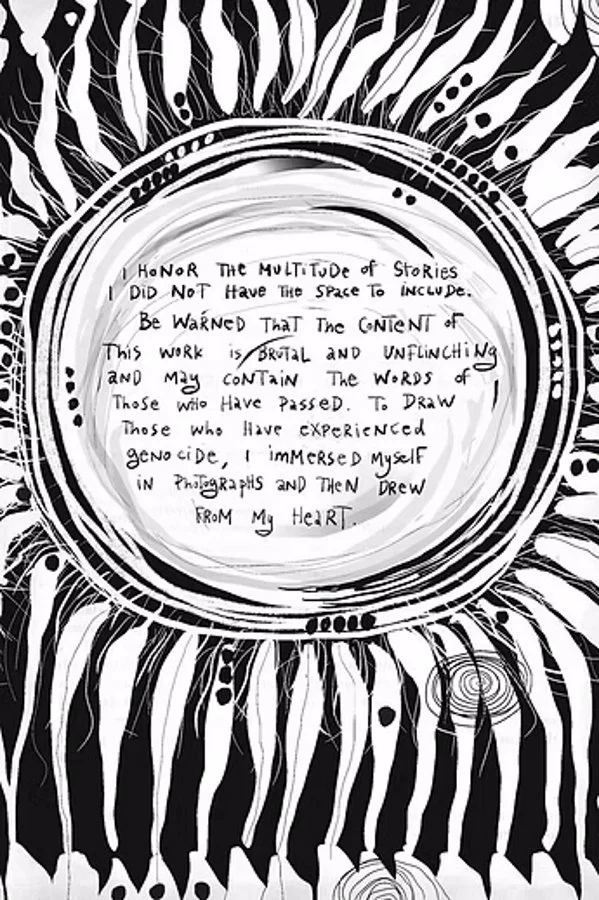 I HONOR THE MULTITUDE of STORIES
I DID NOT HAVE THE SPACE TO INCLUDE.
Be WARNED THAT THE CONTENT of
THIS WORK is BRUTAL AND UNFLINCHING
AND MAY CONTAIN THE WORDS of
THOSE WHO HAVE PASSED. TO DRAW
THOSE WHO HAVE EXPERIENCED
GENOCIDE, I IMMERSED MYSELF
IN PHOTOGRAPHS AND THEN DREW
FROM MY HEART.